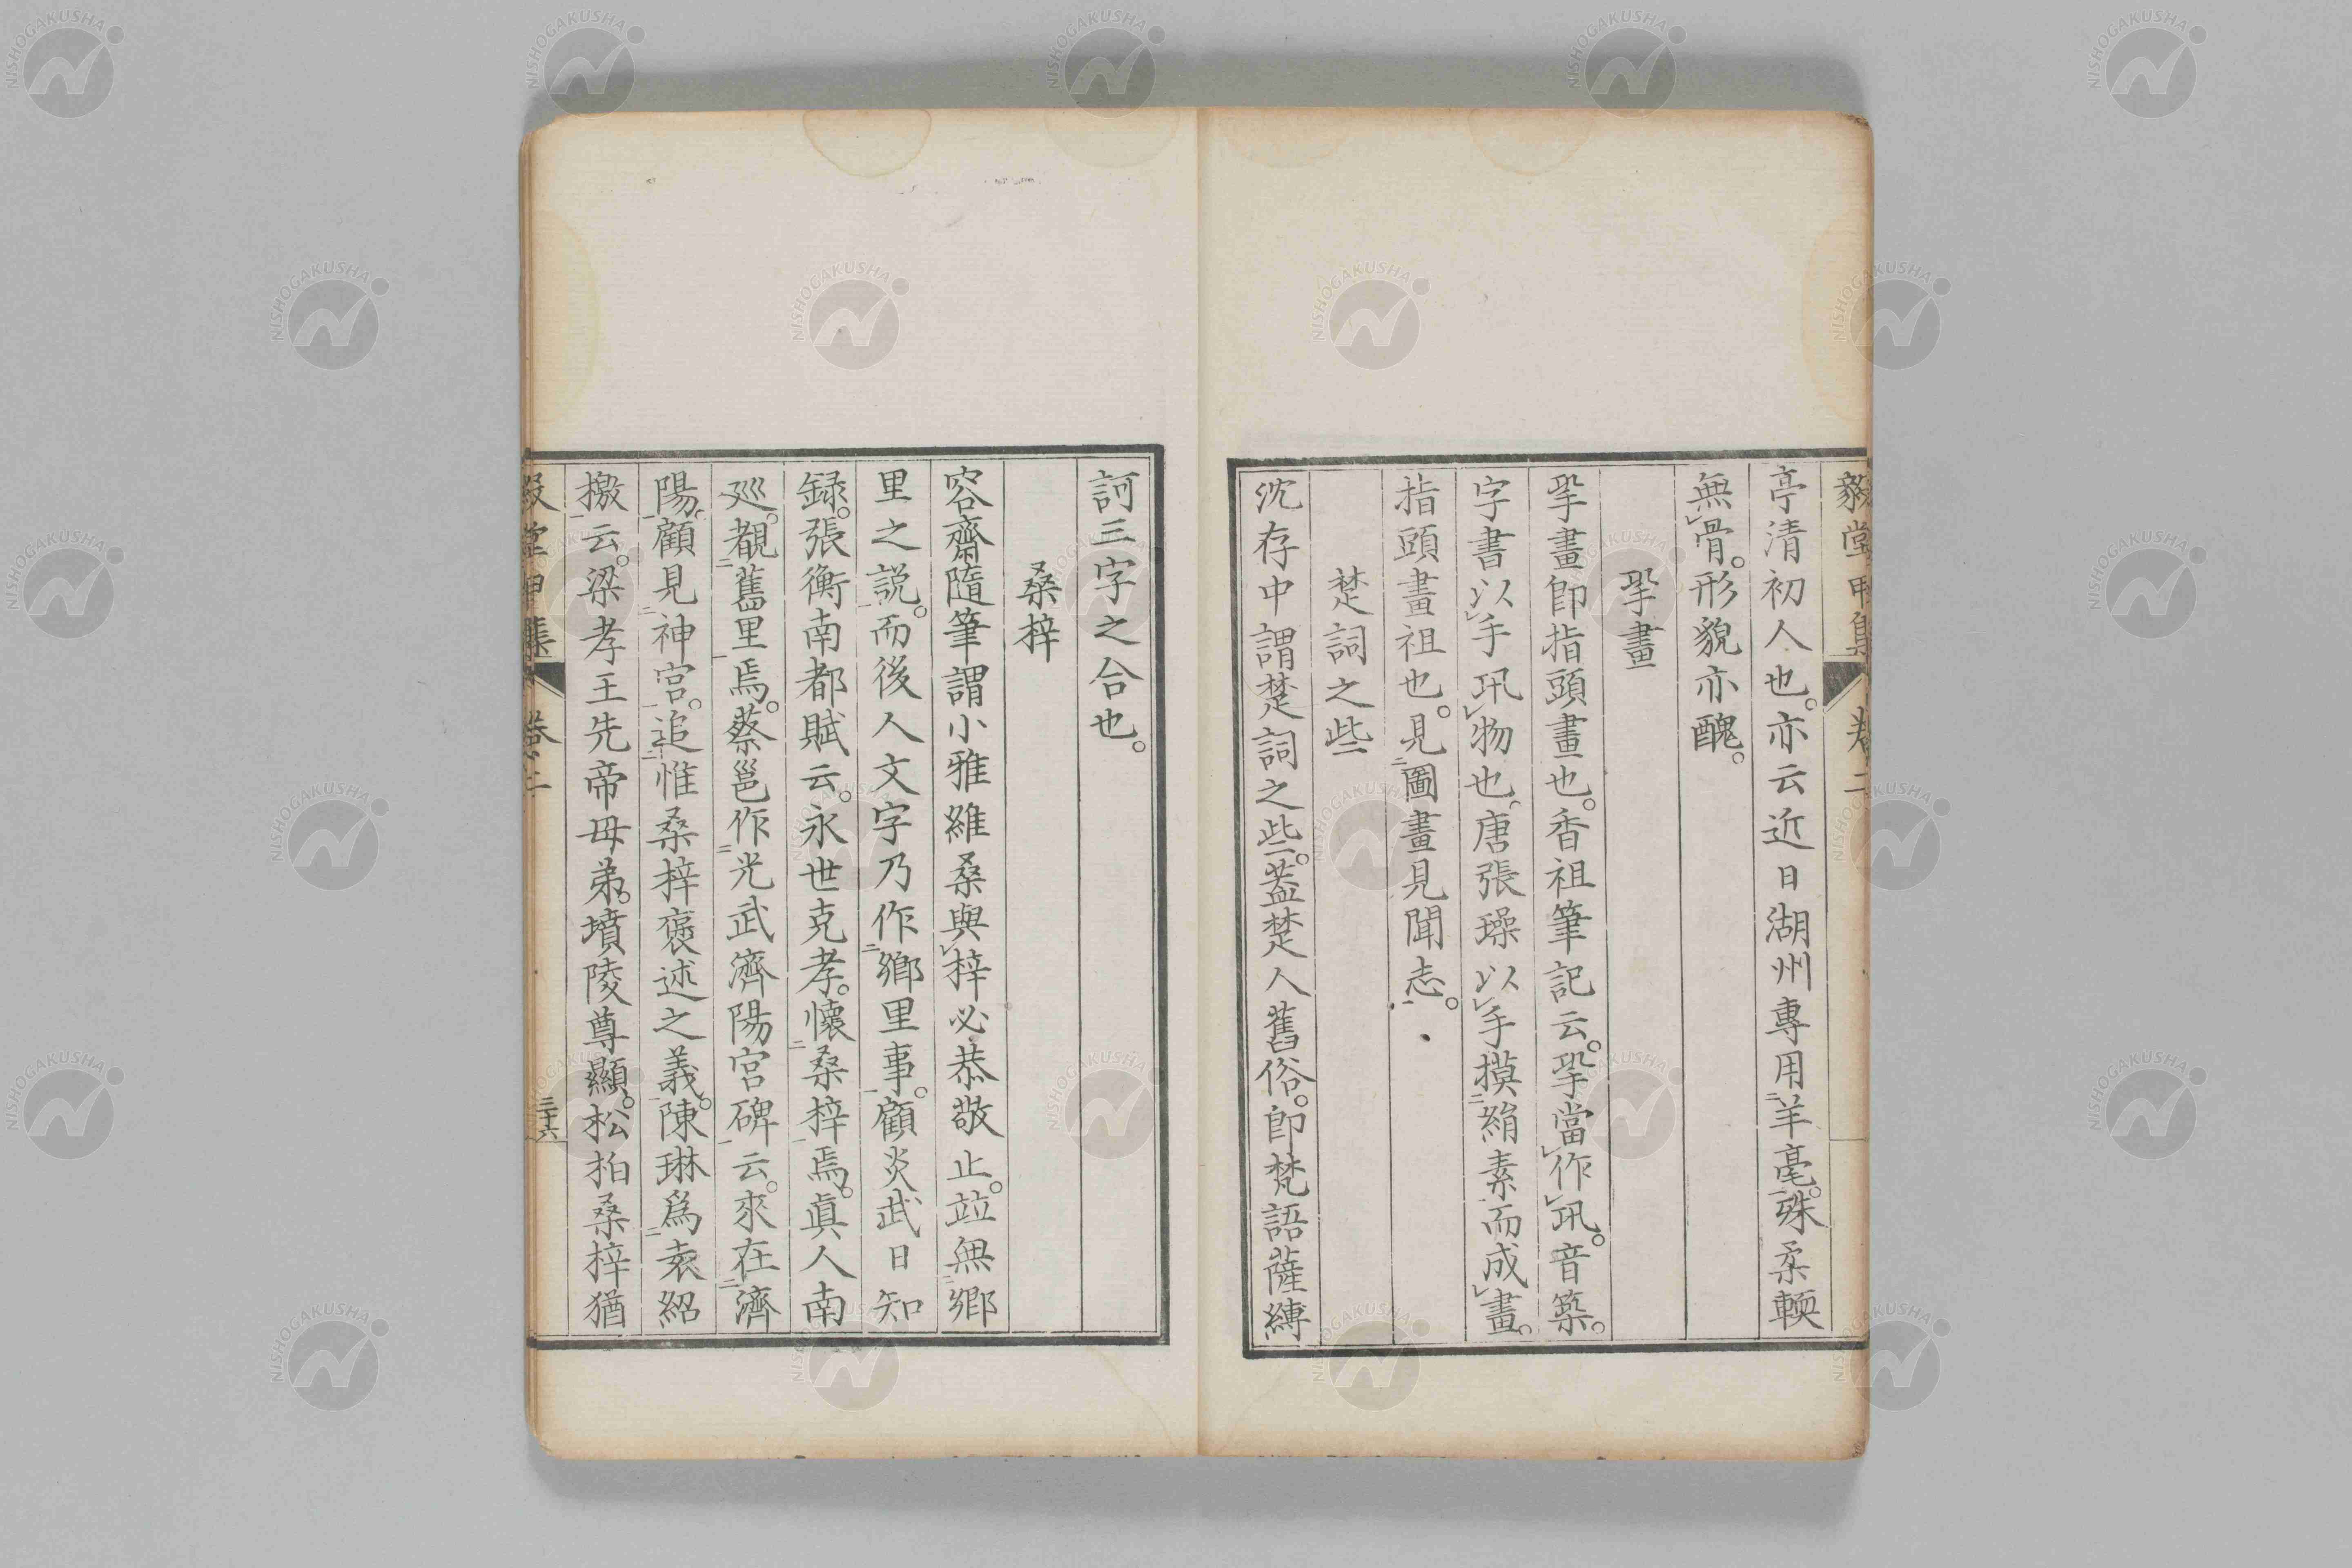 毅堂甲集 卷二
亭清初人也。亦云近日湖州專用羊毫。殊柔輭
無骨。形貌亦醜。
挐畫
挐畫卽指頭畫也。香祖筆記云。挐當作巩。音築。
字書以手巩物也。唐張璪以手摸絹素而成畫。
指頭畫祖也。見圖畫見聞志。
楚詞之些
沈存中謂楚詞之些。葢楚人舊俗。卽梵語薩縛
訶三字之合也。
桑梓
容齋隨筆謂小雅維桑與梓必恭敬止。竝無鄉
里之説。而後人文字乃作鄉里事。顧炎武日知
録。張衡南都賦云。永世克孝。懷桑梓焉。眞人南
巡。覩舊里焉。蔡邕作光武濟陽宮碑云。來在濟
陽。顧見神宮。追惟桑梓褒述之義。陳琳爲袁紹
檄云。梁孝王先帝母弟。墳陵尊顯。松柏桑梓猶
毅堂甲集 卷二 三十六
NISHOGAKUSHA